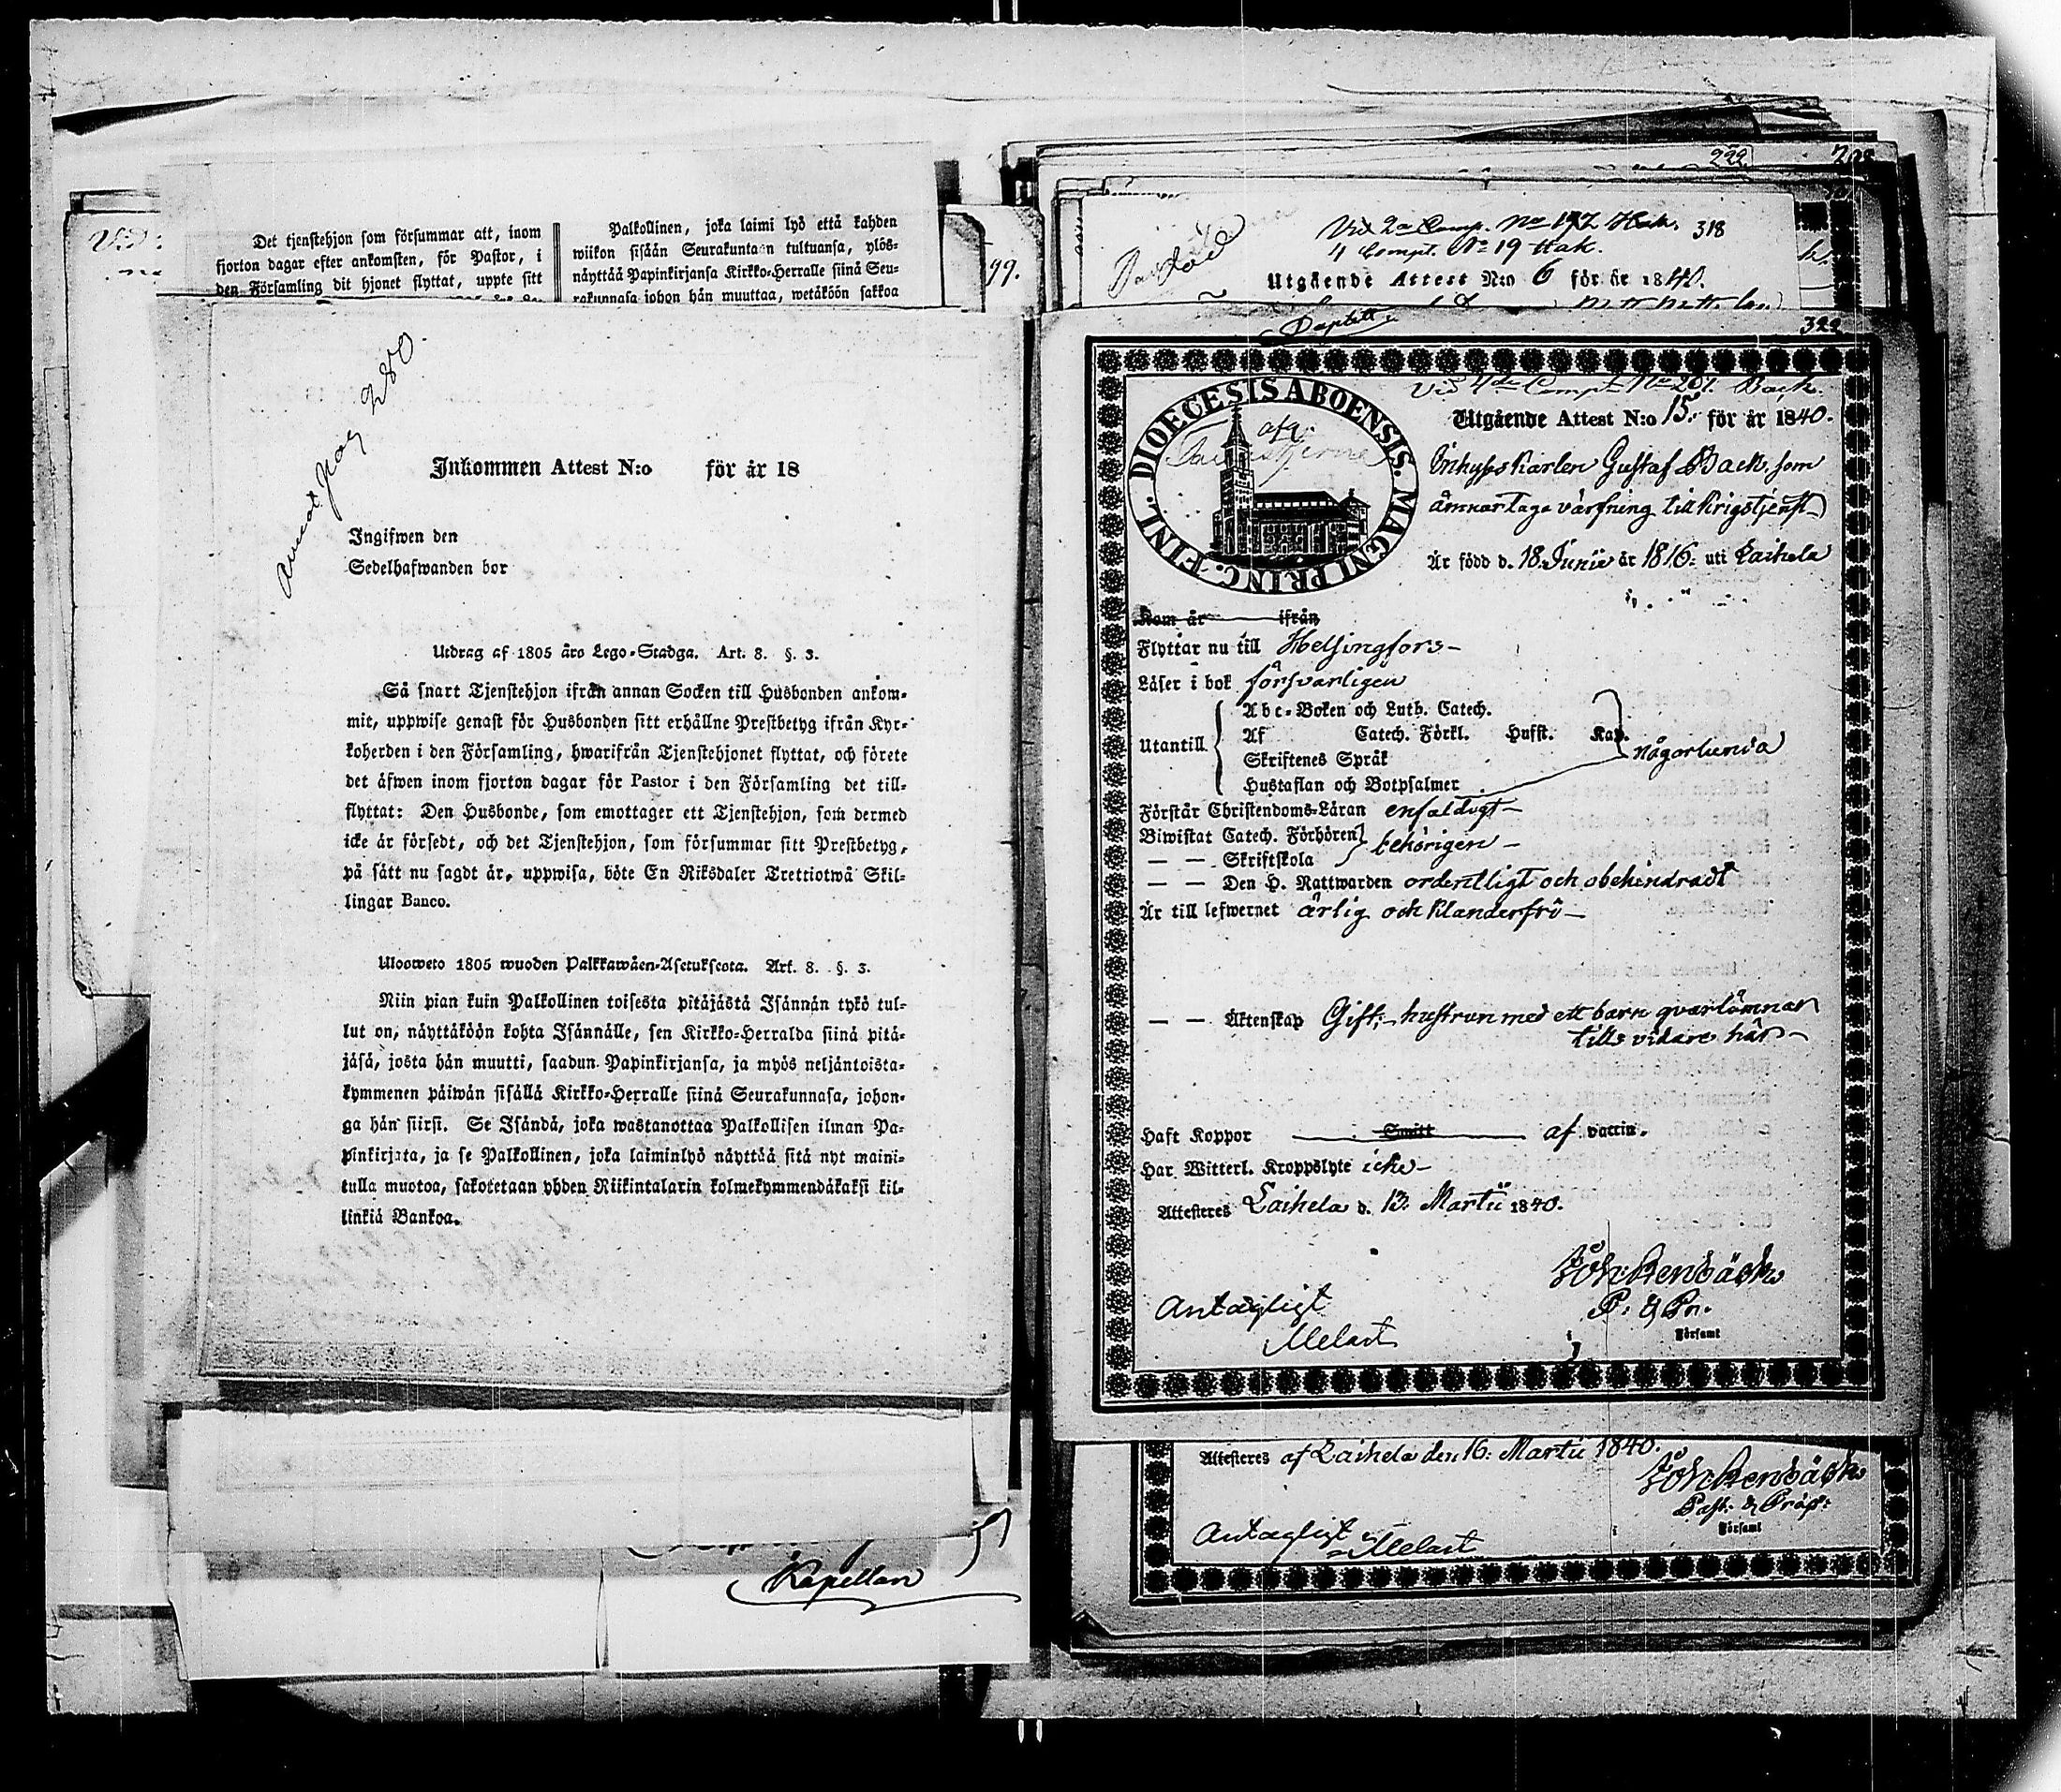 Det tjenstehjon som försummar att, inom
fjorton dagar efter ankomsten, för Pastor, i
den Församling dit hjonet flyttat, uppte sitt
Palkollinen, joka laimi lyö että kahden
wiikon sisään Seurakuntaan tultuansa, ylös-
näyttää Papinkirjansa Kirkko-Herralle siinä Seu-
rakunnasa johon hän muuttaa, wetäköön sakkoa
99.
280.
Inkommen Attest N:o för år 18
Ingifwen den
Sedelhafwanden bor
Utdrag af 1805 års Lego-Stadga. Art. 8. §. 3.
Så snart Tjenstehjon ifrån annan Socken till Husbonden ankom-
mit, uppwise genast för Husbonden sitt erhållne Prestbetyg ifrån Kyr-
koherden i den Församling, hwarifrån Tjenstehjonet flyttat, och förete
det äfwen inom fjorton dagar för Pastor i den Församling det till-
flyttat: Den Husbonde, som emottager ett Tjenstehjon, som dermed
icke är försedt, och det Tjenstehjon, som försummar sitt Prestbetyg,
på sätt nu sagdt är, uppwisa, böte En Riksdaler Trettiotwå Skil-
lingar Banco.
Uloosweto 1805 wuoden Palkkawäen-Asetuksesta. Art. 8. §. 3.
Niin pian kuin Palkollinen toisesta pitäjästä Isännän tykö tul-
lut on, näyttäköön kohta Isännälle, sen Kirkko-Herralda siinä pitä-
jäsä, josta hän muutti, saadun Papinkirjansa, ja myös neljäntoista-
kymmenen päiwän sisällä Kirkko-Herralle siinä Seurakunnasa, johon-
ga hän siirsi. Se Isändä, joka wastanottaa Palkollisen ilman Pa-
pinkirjata, ja se Palkollinen, joka laiminlyö näyttää sitä nyt maini-
tulla muotoa, sakotetaan yhden Riikintalarin kolmekymmendäkaksi kil-
linkiä Bankoa.
Kapellan
222
Vid 2a Comp. No 172 Hak. 318
4 Compt. No 19 Hak.
Utgående Attest N:o 6 för år 1840.
322
DIOECESIS ABOENSIS. MAGNI PRINC. FINL.
Vid 4de Compt. No 201. Back.
Utgående Attest N:o 15. för år 1840.
Inhyses Karlen Gustaf Back. som
ämnar taga värfning till Krigstjenst
Är född d. 18. Junii år 1816: uti Laihela
Kom år ifrån
Flyttar nu till Helsingfors
Läser i bok försvarligen
Utantill Abc-Boken och Luth. Catech.
Af Catech. Förkl. Husst. Kap.
Skriftenes Språk
Hustaflan och Botpsalmer
någorlunda
Förstår Christendoms-Läran enfaldigt
Biwistat Catech. Förhören
— — Skriftskola
behörigen
— — Den H. Nattwarden ordentligt och obehindradt
Är till lefwernet ärlig och klanderfri
— — Äktenskap Gift; hustrun med ett barn qvarlämnar
tills vidare här
Haft Koppor Smitt af vaccin.
Har Witterl. Kroppslyte icke
Attesteres Laihela d. 13. Martii 1840.
Joh. Renbäck
P. & Pr.
Församl
Antagligt
Melart
Attesteres af Laihela den 16. Martii 1840.
Joh. Renbäck
Past. & Præp:
Församl
Antagligt
Melart